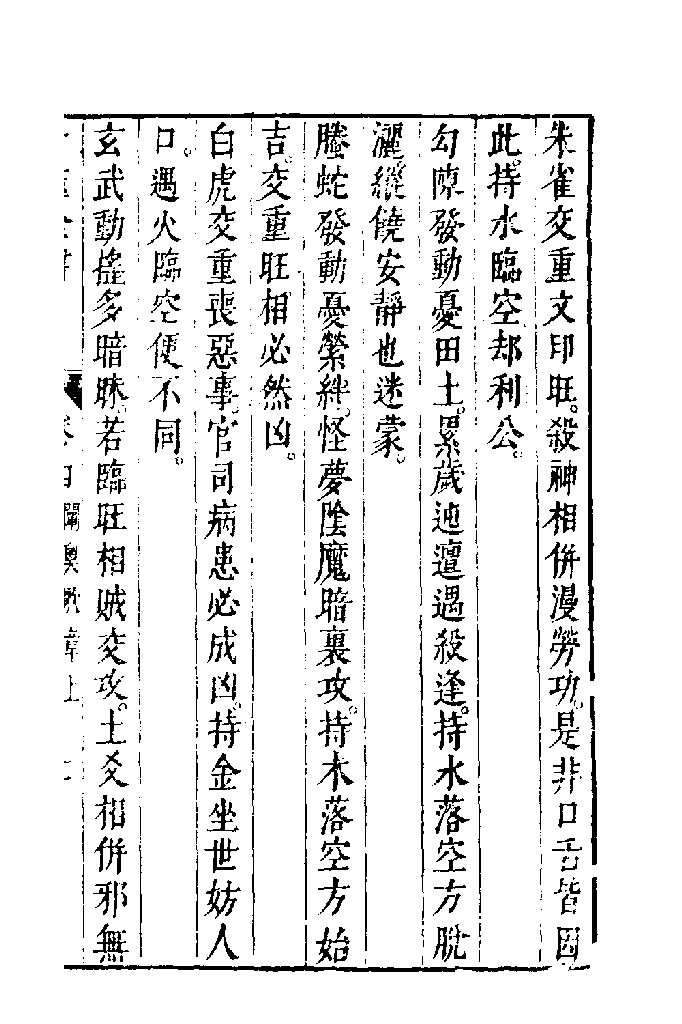 朱雀交重文印旺。殺神相併漫勞功。是非口舌皆因
此。持水臨空却利公。
勾陳發動憂田土。累歲迍邅遇殺逢。持水落空方脫
灑。縱饒安靜也迷蒙。
螣蛇發動憂縈絆。怪夢陰魔暗裏攻。持木落空方始
吉。交重旺相必然凶。
白虎交重喪惡事。官司病患必成凶。持金坐世妨人
口。遇火臨空便不同。
玄武動搖多暗昧。若臨旺相賊交攻。土爻相併邪無